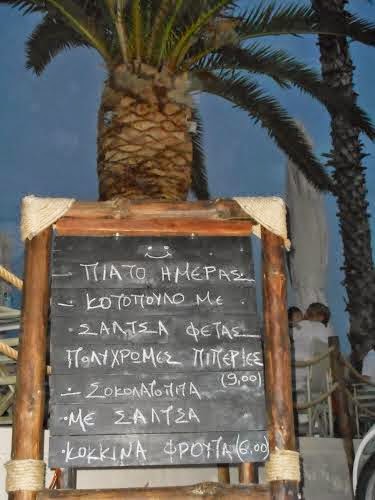 – ΠΙΑΤΟ ΗΜΕΡΑΣ
– ΚΟΤΟΠΟΥΛΟ ΜΕ
· ΣΑΛΤΣΑ ΦΕΤΑΣ
ΠΟΛΥΧΡΩΜΕΣ ΠΙΠΕΡΙΕΣ
(9,00)
– ΣΟΚΟΛΑΤΟΠΙΤΑ
· ΜΕ ΣΑΛΤΣΑ
· ΚΟΚΚΙΝΑ ΦΡΟΥΤΑ (6.00)